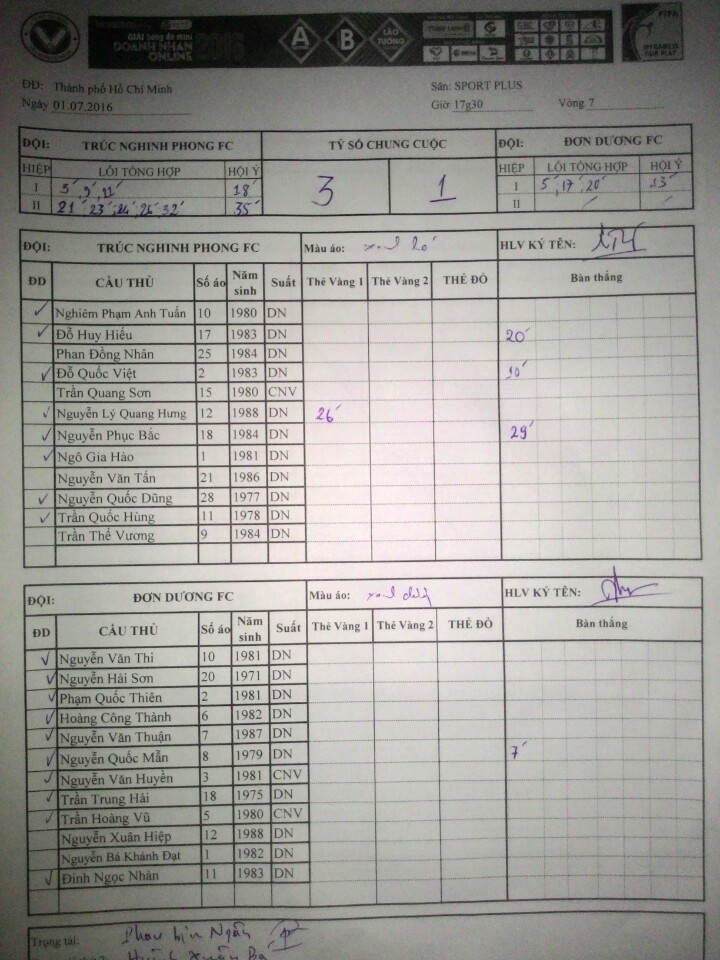 GIẢI bóng đá mini
DOANH NHÂN 2016
ONLINE
A B LÃO TƯỚNG
FIFA
MY GAME IS FAIR PLAY
ĐĐ: Thành phố Hồ Chí Minh Sân: SPORT PLUS
Ngày 01.07.2016 Giờ: 17g30 Vòng 7
ĐỘI: TRÚC NGHINH PHONG FC TỶ SỐ CHUNG CUỘC ĐỘI: ĐƠN DƯƠNG FC
HIỆP LỖI TỔNG HỢP HỘI Ý 3 1 HIỆP LỖI TỔNG HỢP HỘI Ý
I 5' 9' 11' 18' I 5' 17' 20' 13'
II 21' 23' 24' 26' 32' 35' II / /
ĐỘI: TRÚC NGHINH PHONG FC Màu áo: HLV KÝ TÊN:
ĐD CẦU THỦ Số áo Năm sinh Suất Thẻ Vàng 1 Thẻ Vàng 2 THẺ ĐỎ Bàn thắng
✓ Nghiêm Phạm Anh Tuấn 10 1980 DN
✓ Đỗ Huy Hiếu 17 1983 DN 20'
Phan Đồng Nhân 25 1984 DN
✓ Đỗ Quốc Việt 2 1983 DN 10'
Trần Quang Sơn 15 1980 CNV
✓ Nguyễn Lý Quang Hưng 12 1988 DN 26'
✓ Nguyễn Phục Bắc 18 1984 DN 29'
✓ Ngô Gia Hào 1 1981 DN
Nguyễn Văn Tấn 21 1986 DN
✓ Nguyễn Quốc Dũng 28 1977 DN
✓ Trần Quốc Hùng 11 1978 DN
Trần Thế Vương 9 1984 DN
ĐỘI: ĐƠN DƯƠNG FC Màu áo: HLV KÝ TÊN:
ĐD CẦU THỦ Số áo Năm sinh Suất Thẻ Vàng 1 Thẻ Vàng 2 THẺ ĐỎ Bàn thắng
✓ Nguyễn Văn Thi 10 1981 DN
✓ Nguyễn Hải Sơn 20 1971 DN
✓ Phạm Quốc Thiên 2 1981 DN
✓ Hoàng Công Thành 6 1982 DN
✓ Nguyễn Văn Thuận 7 1987 DN
✓ Nguyễn Quốc Mẫn 8 1979 DN 7'
✓ Nguyễn Văn Huyền 3 1981 CNV
✓ Trần Trung Hải 18 1975 DN
✓ Trần Hoàng Vũ 5 1980 CNV
Nguyễn Xuân Hiệp 12 1988 DN
Nguyễn Bá Khánh Đạt 1 1982 DN
✓ Đinh Ngọc Nhân 11 1983 DN
Trọng tài: